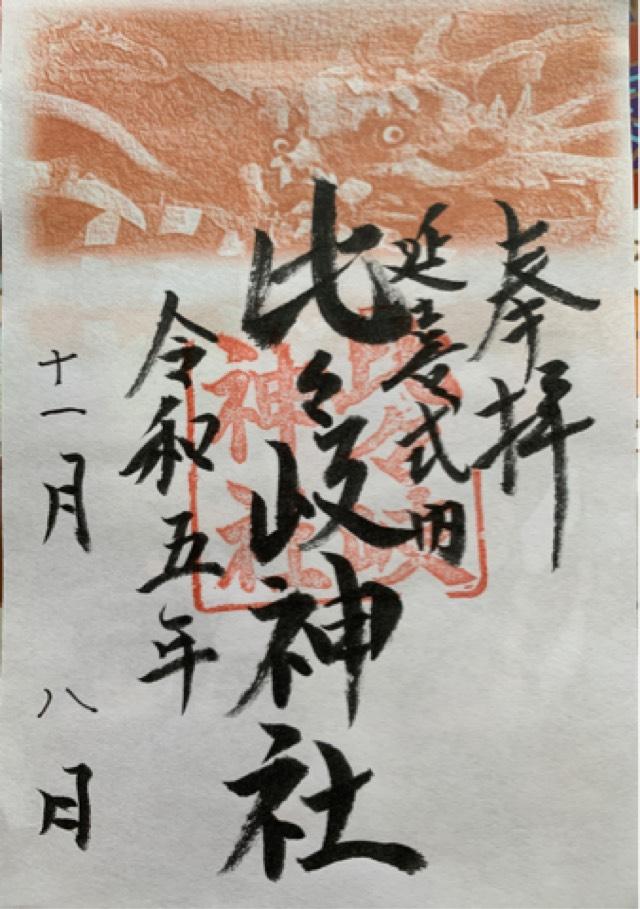 奉拝
延喜式内
比々岐神社
令和五年
十一月 八日
比々岐
神社